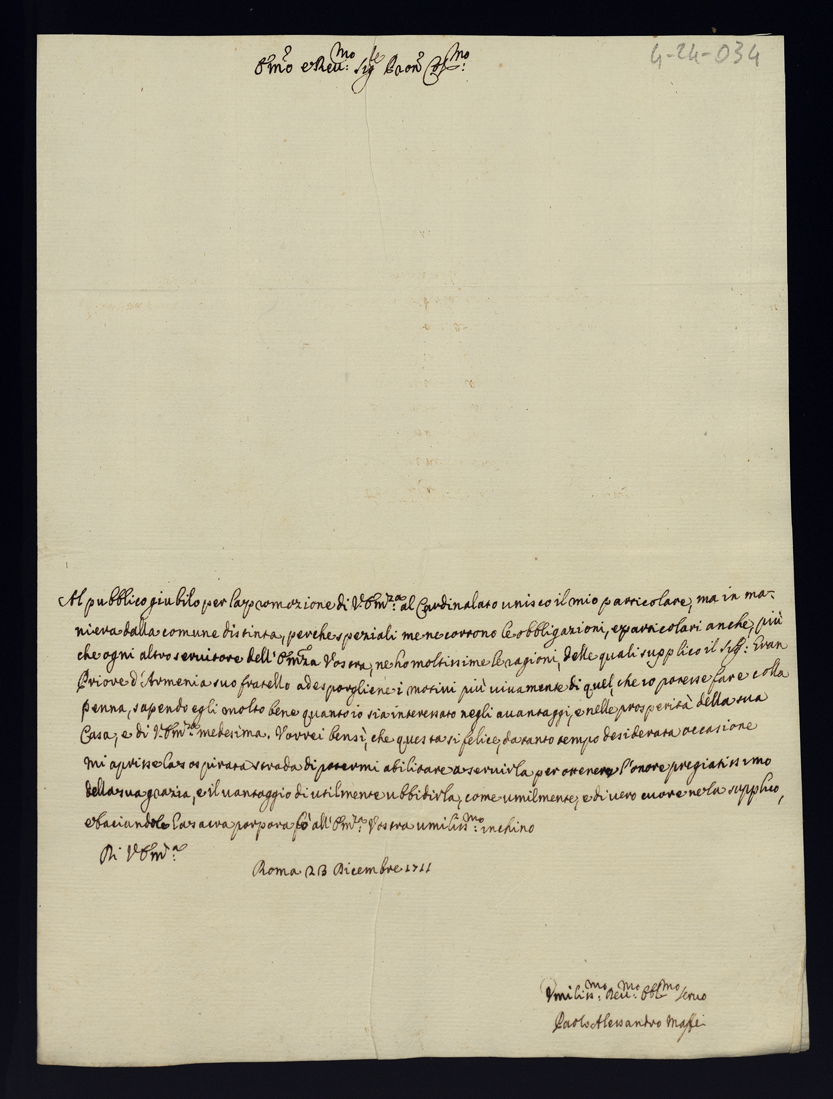 4-24-034
Em̃o e Reu:mo Sig.le Pron Col:mo
Al pubblico giubilo per la promozione di V. Em̃za al Cardinalato unisco il mio particolare, ma in ma-
niera dalla comune distinta, perche speziali me ne corrono le obbligazioni, e particolari anche, più
che ogni altro seruitore dell'Em̃za Vostra, ne ho moltissime le ragioni, delle quali supplico il Sig: Gran
Priore d'Armenia suo fratello ad esporgliene i motivi più viuamente di quel, che io potesse fare colla
penna, sapendo egli molto bene quanto io sia interessato negli auantaggi, e nelle prosperità della sua
Casa, e di V. Em̃za medesima. Vorrei bensì, che questa si felice, da tanto tempo desiderata occasione
mi aprisse la sospirata strada di potermi abilitare a seruirla per ottenere l'onore pregiatissimo
della sua grazia, e il uantaggio di utilmente ubbidirla, come umilmente, e di uero cuore ne la supplico,
e baciandole la sacra porpora fò all'Em̃za Vostra umiliss:mo inchino
Di V. Em̃a
Roma 23 Dicembre 1711
Vmiliss:mo Deu:mo Obl:mo Seruo
Paolo Alessandro Maffei